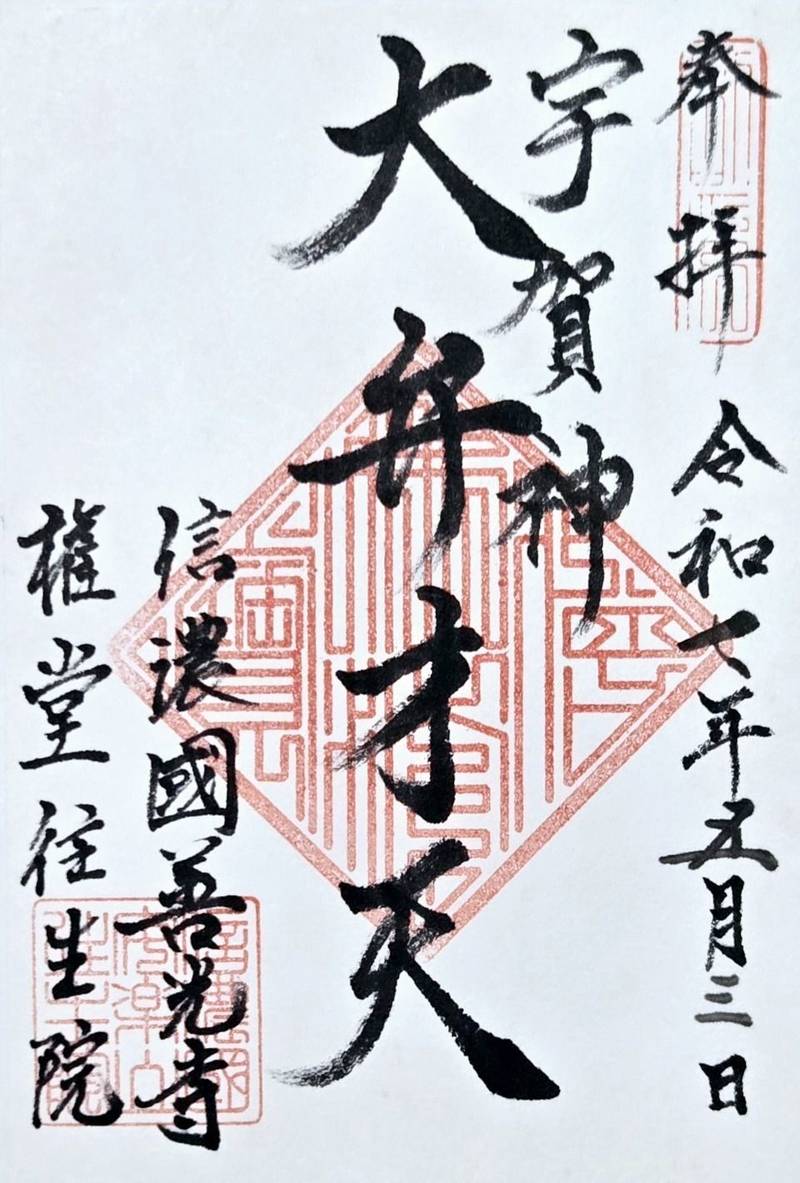 奉拝
令和七年五月三日
宇賀神
大弁才天
信濃國善光寺
權堂往生院